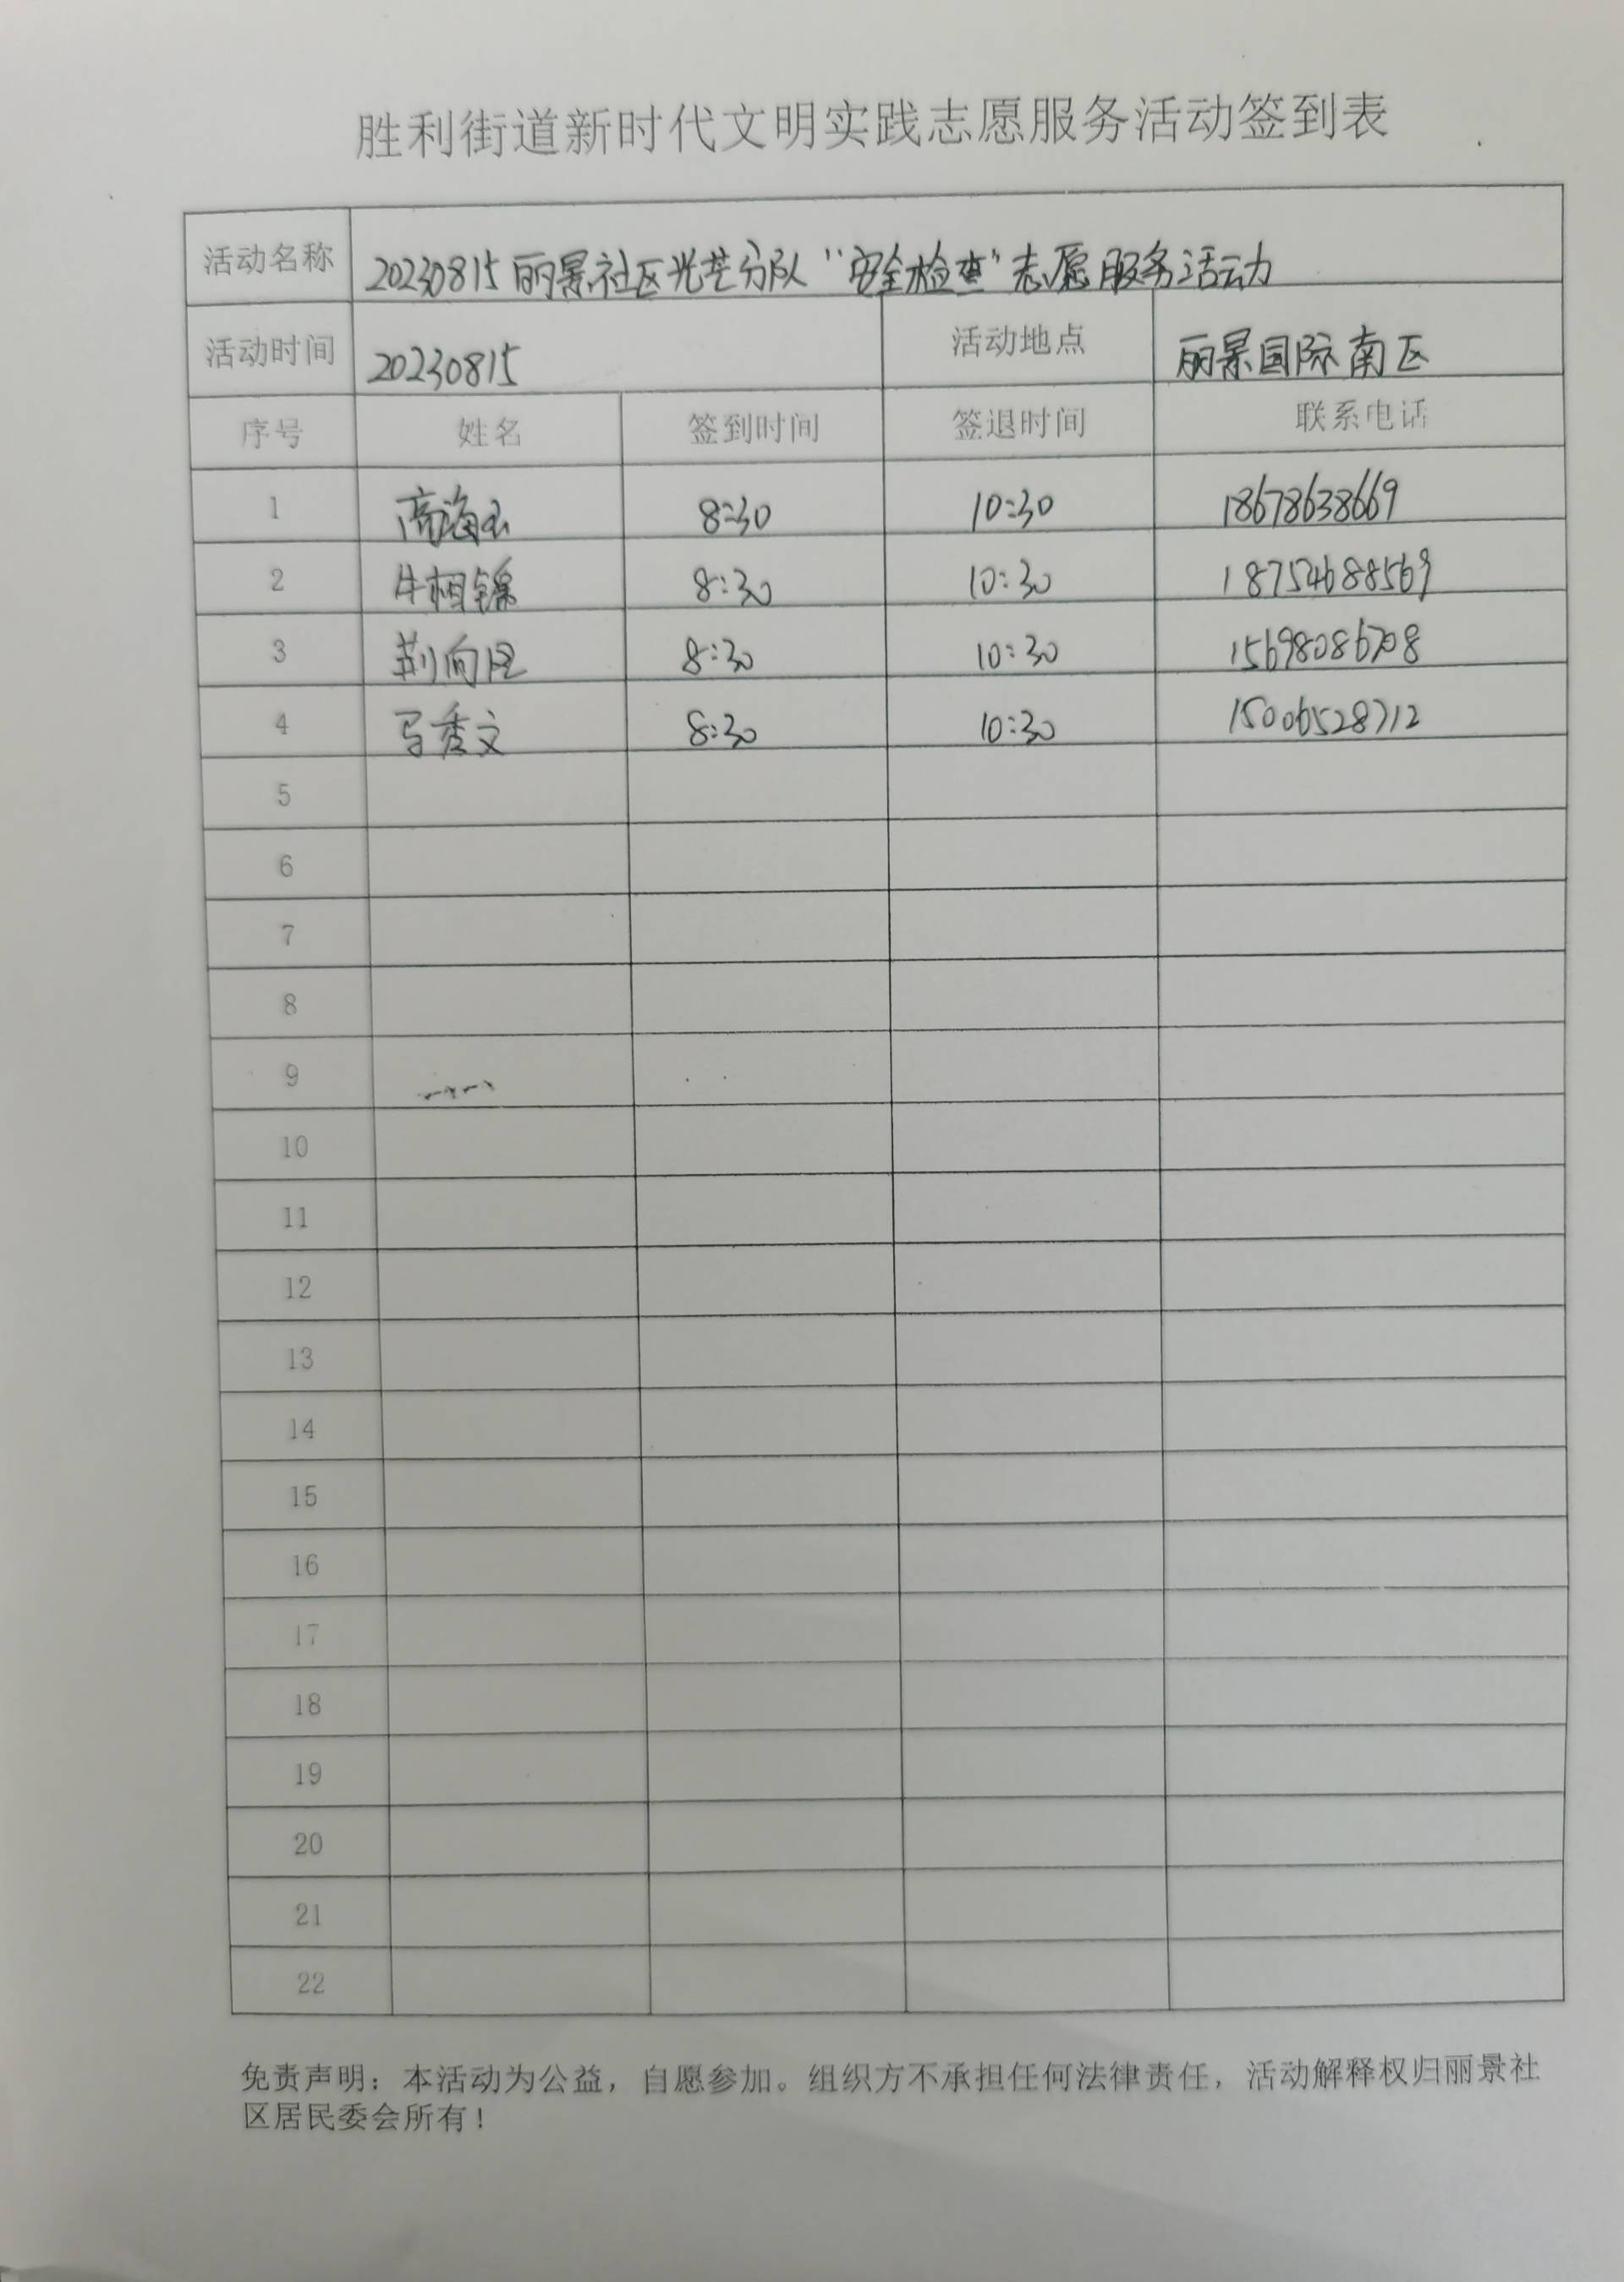 胜利街道新时代文明实践志愿服务活动签到表
活动名称 20230815丽景社区光芒分队“安全检查”志愿服务活动
活动时间 20230815 活动地点 丽景国际南区
序号 姓名 签到时间 签退时间 联系电话
1 高海玉 8:30 10:30 18678638669
2 牛相锦 8:30 10:30 18754688569
3 荆向 8:30 10:30 15698086708
4 马秀文 8:30 10:30 15006528712
5
6
7
8
9
10
11
12
13
14
15
16
17
18
19
20
21
22
免责声明：本活动为公益，自愿参加。组织方不承担任何法律责任，活动解释权归丽景社
区居民委会所有！